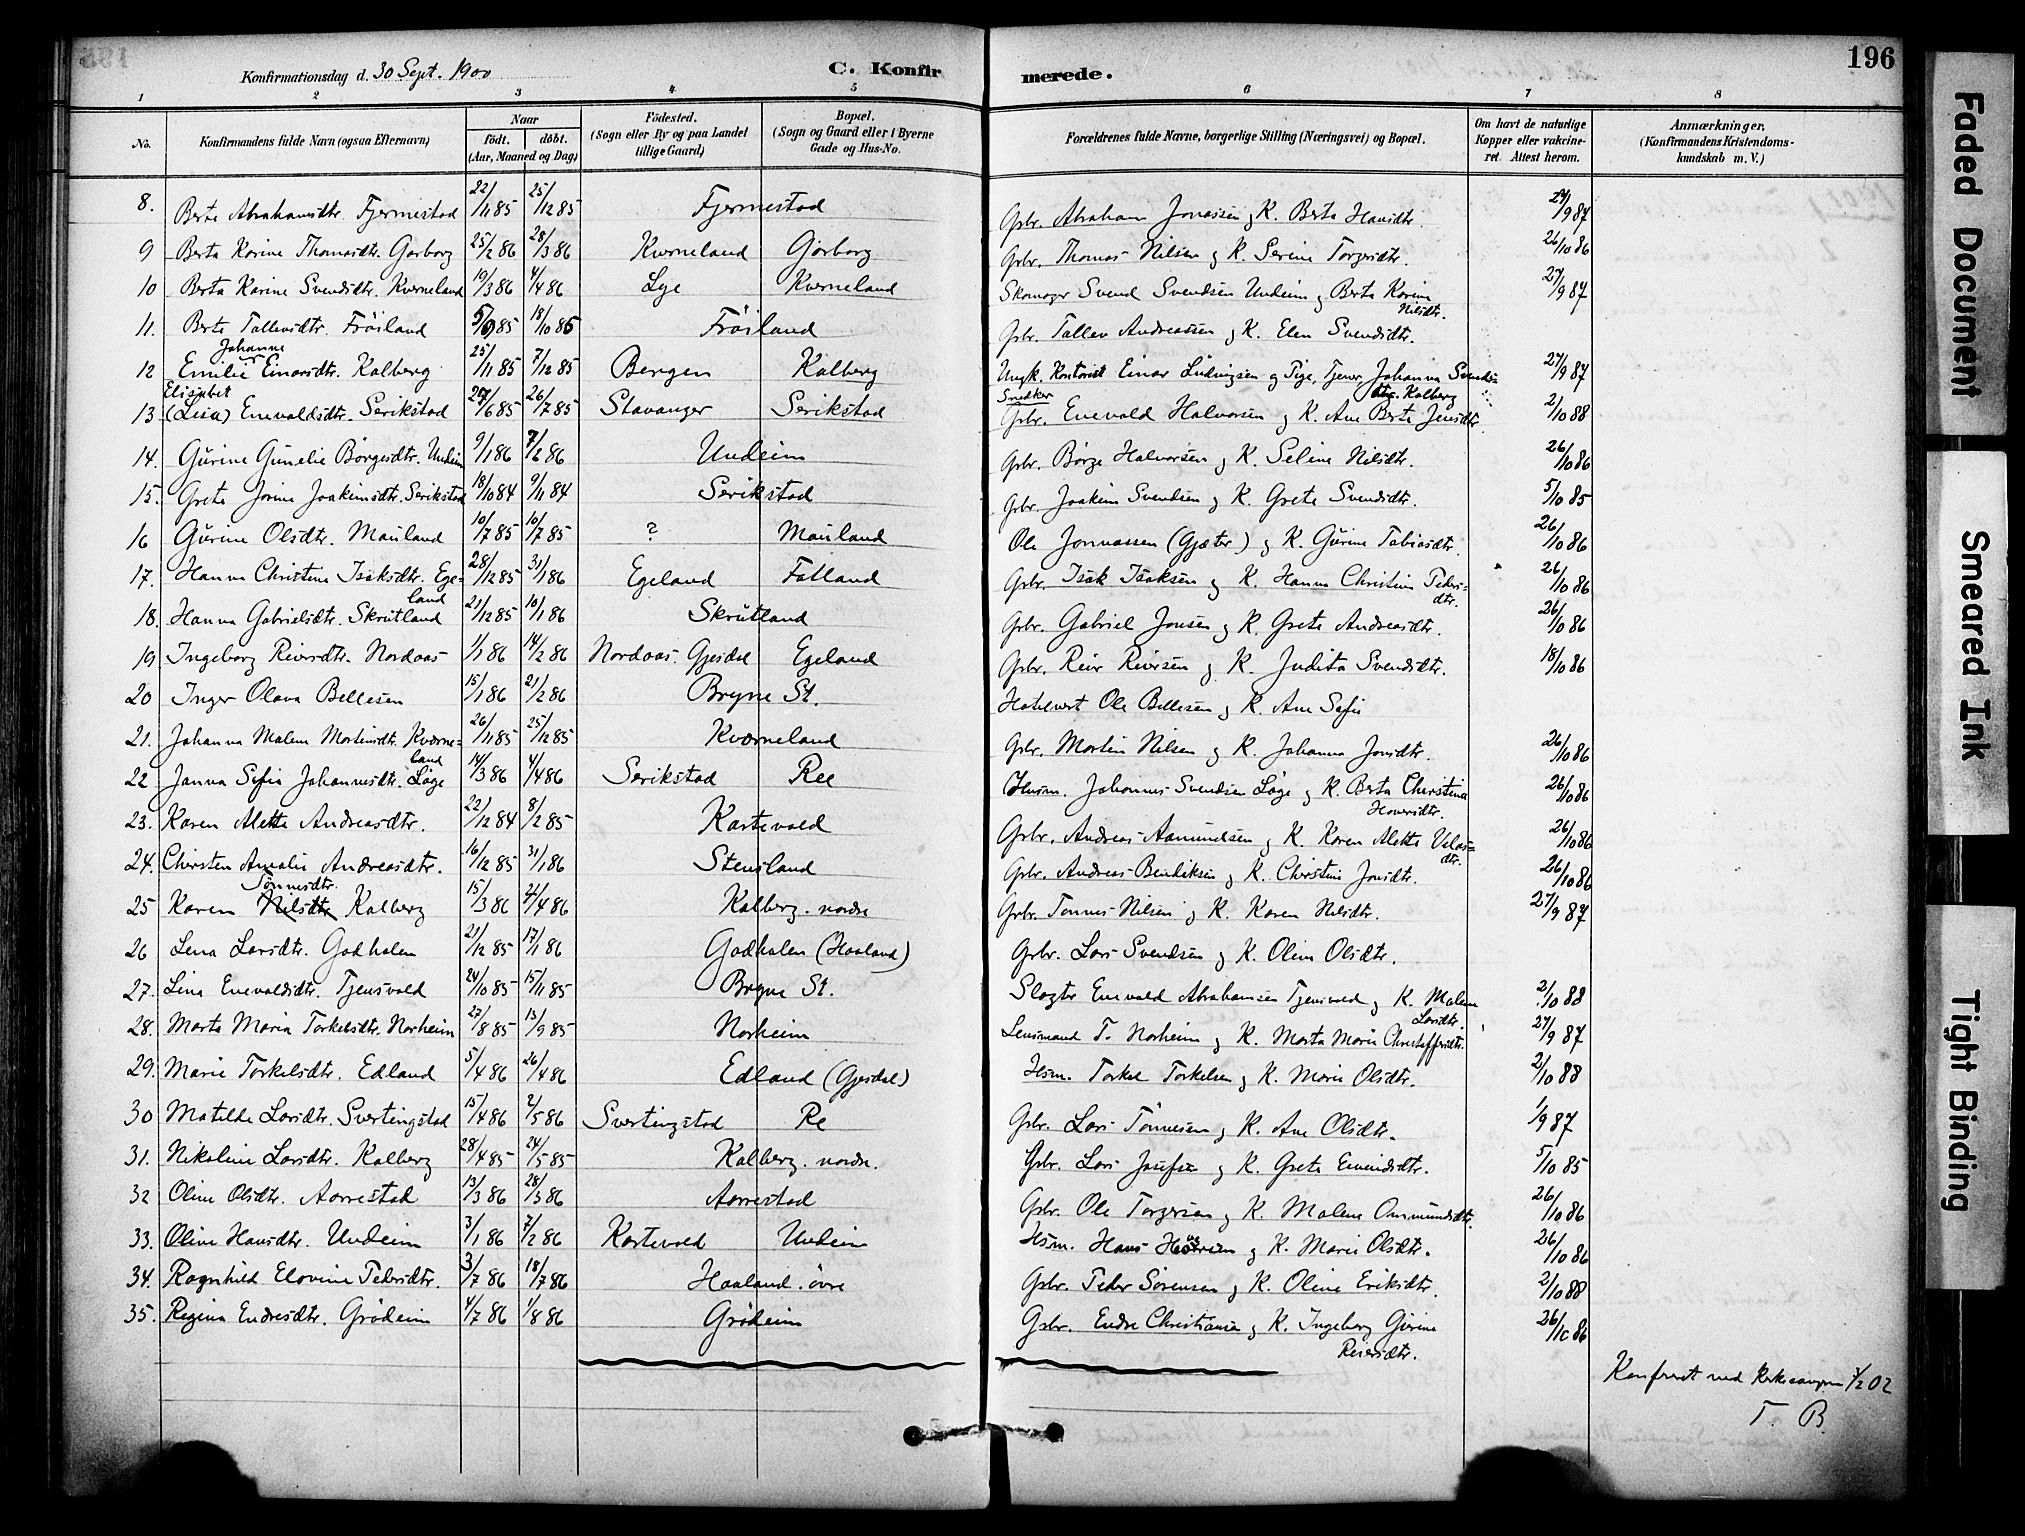 Konfirmationsdag d. 30 Sept. 1900
C. Konfir
merede.
196
1 2 3 4 5 6 7 8
No.
Konfirmandens fulde Navn (ogsaa Efternavn)
Naar
født. døbt.
(Aar, Maaned og Dag)
Fødested.
(Sogn eller By og paa Landet
tillige Gaard)
Bopæl.
(Sogn og Gaard eller i Byerne
Gade og Hus-No.
Forældrenes fulde Navne, borgerlige Stilling (Næringsvei) og Bopæl.
Om havt de naturlige
Kopper eller vakcine-
ret. Attest herom.
Anmærkninger.
(Konfirmandens Kristendoms-
kundskab m. V.)
8. Berta Abrahamsdtr. Fjermestad 22/11 85 25/12 85 Fjermestad Gbr. Abraham Jonassen og K. Berta Hansdtr. 27/9 87
9 Berta Karine Thomasdtr. Garborg 25/2 86 28/3 86 Kverneland Garborg Gbr. Thomas Nilsen og K. Serine Torgersdtr. 26/10 86
10 Berta Karine Svendsdtr. Kverneland 19/3 86 4/4 86 Lye Kverneland Skomager Svend Svendsen Undeim og Berta Karine Nilsdtr. 27/9 87
11. Berta Tallevsdtr. Frøiland 5/9 85 18/10 85 Frøiland Gbr. Tallev Andreassen og K. Elen Svendsdtr.
12 Emilie Johanne Einarsdtr. Kalberg 25/11 85 7/12 85 Bergen Kalberg Ungk. Kontorist Einar Ludvigsen og Pige, Tjener, Johanna Svends- dtr. Kalberg 27/9 87
13. Elisabet (Lisa) Enevaldsdtr. Serikstad 27/6 85 26/7 85 Stavanger Serikstad Snedker Gbr. Enevald Halvorsen og K. Ane Berta Jensdtr. 2/10 88
14. Gurine Gunelie Børgesdtr. Undeim 9/1 86 7/2 86 Undeim Gbr. Børge Halvorsen og K. Seline Nilsdtr. 26/10 86
15. Grete Jorine Joakimsdtr. Serikstad 18/10 84 9/11 84 Serikstad Gbr. Joakim Svendsen og K. Grete Svendsdtr. 5/10 85
16 Gurine Olsdtr. Mauland 10/7 85 10/7 85 ? Mauland Ole Jonnassen (Gjæter) og K. Gurine Tobiasdtr. 26/10 86
17. Hanna Christine Isaksdtr. Ege- land 28/12 85 31/1 86 Egeland Fotland Gbr. Isak Isaksen og K. Hanna Christine Peders- dtr. 26/10 86
18. Hanna Gabrielsdtr. Skrutland 21/12 85 10/1 86 Skrutland Gbr. Gabriel Jonsen og K. Grete Andreasdtr. 26/10 86
19 Ingeborg Reiersdtr. Nordaas 1/1 86 14/2 86 Nordaas. Gjesdal Egeland Gbr. Reier Reiersen og K. Judita Svendsdtr. 18/10 86
20 Inger Olava Bellesen 15/1 86 21/2 86 Bryne St. Hotelvert Ole Bellesen og K. Ane Sofie
21. Johanna Malena Mortensdtr. Kverne- land 26/11 85 25/12 85 Kverneland Gbr. Morten Nilsen og K. Johanna Jonsdtr. 26/10 86
22 Janna Sofie Johannesdtr. Løge 14/3 86 4/4 86 Serikstad Ree Husm. Johannes Svendsen Løge og K. Berta Christina Hoversdtr. 26/10 86
23. Karen Alette Andreasdtr. 22/12 84 8/2 85 Kartevold Gbr. Andreas Aamundsen og K. Karen Alette Velas- dtr. 26/10 86
24. Chirsten Amalie Andreasdtr. 16/12 85 31/1 86 Stensland Gbr. Andreas Bendiksen og K. Chirstine Jonsdtr. 26/10 86
25 Karen Tønnesdtr. Kalberg 15/3 86 4/4 86 Kalberg. nordre Gbr. Tønnes Nilsen og K. Karen Nilsdtr. 27/9 87
26 Lena Larsdtr. Godhalen 21/12 85 17/1 86 Godhalen (Haaland) Gbr. Lars Svendsen og K. Oline Olsdtr.
27. Lina Enevaldsdtr. Tjensvold 24/10 85 15/11 85 Bryne St. Slagter Enevald Abrahamsen Tjensvold og K. Malena Larsdtr. 2/10 88
28. Marta Maria Torkelsdtr. Norheim 27/8 85 13/9 85 Norheim Lensmand T. Norheim og K. Marta Marie Christoffersdtr. 27/9 87
29. Marie Torkelsdtr. Edland 5/4 86 26/4 86 Edland (Gjesdal) Hsm. Torkel Torkelsen og K. Marie Olsdtr. 2/10 88
30 Matilde Larsdtr. Svertingstad 15/4 86 2/5 86 Svertingstad Re Gbr. Lars Tønnesen og K. Ane Olsdtr. 1/9 87
31. Nikoline Larsdtr. Kalberg 28/4 85 24/5 85 Kalberg. nordre. Gbr. Lars Josefsen og K. Grete Eivindsdtr. 5/10 85
32 Oline Olsdtr. Aarrestad 13/3 86 28/3 86 Aarrestad Gbr. Ole Torgersen og K. Malene Ommundsdtr. 26/10 86
33. Oline Hansdtr. Undeim 3/1 86 7/2 86 Kartevold Undeim Hsm. Hans og K. Marie Olsdtr. 26/10 86
34. Ragnhild Elovine Pedersdtr. 3/7 86 18/7 86 Haaland. øvre Gbr. Peder Sørensen og K. Oline Eriksdtr. 2/10 88
35. Regina Endresdtr. Grødeim 4/7 86 1/8 86 Grødeim Gbr. Endre Christiansen og K. Ingeborg Gurine Reiersdtr. 26/10 86
Konfereret med Kirkesangeren 1/2 02
T. B.
Faded Document
Smeared Ink
Tight Binding